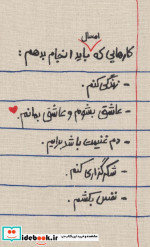 امسال
کارهایی که باید انجام بدهم :
- زندگی کنم.
- عاشق بشوم و عاشق بمانم.
- دم غنیمت باشد برایم.
- شکرگزاری کنم.
- نفس بکشم.
ایده بوک